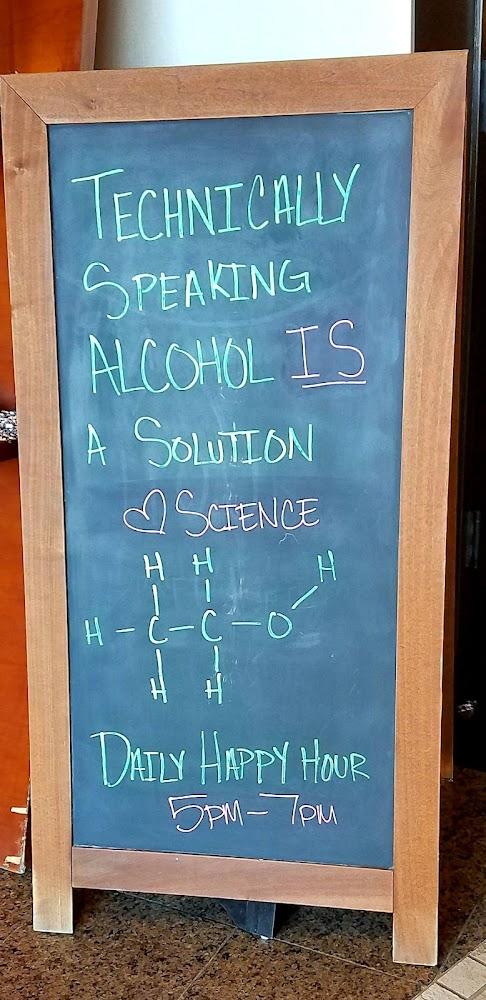 TECHNICALLY
SPEAKING
ALCOHOL IS
A SOLUTION
♡ SCIENCE
H H H
H - C - C - O
H H
DAILY HAPPY HOUR
5PM - 7PM